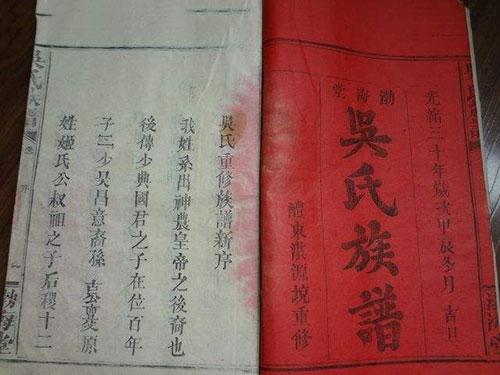 光緒三十年歲次甲辰冬月 吉日
渤海堂
吳氏族譜
醴東洪源境重修
吳氏重修族譜新序
我姓系出神農皇帝之後裔也
後傳少典國君之子在位百年
子二少吴昌意裔孫 慶原
姓姬氏公叔祖之子后稷十二
吳氏族譜
序
一
渤海堂